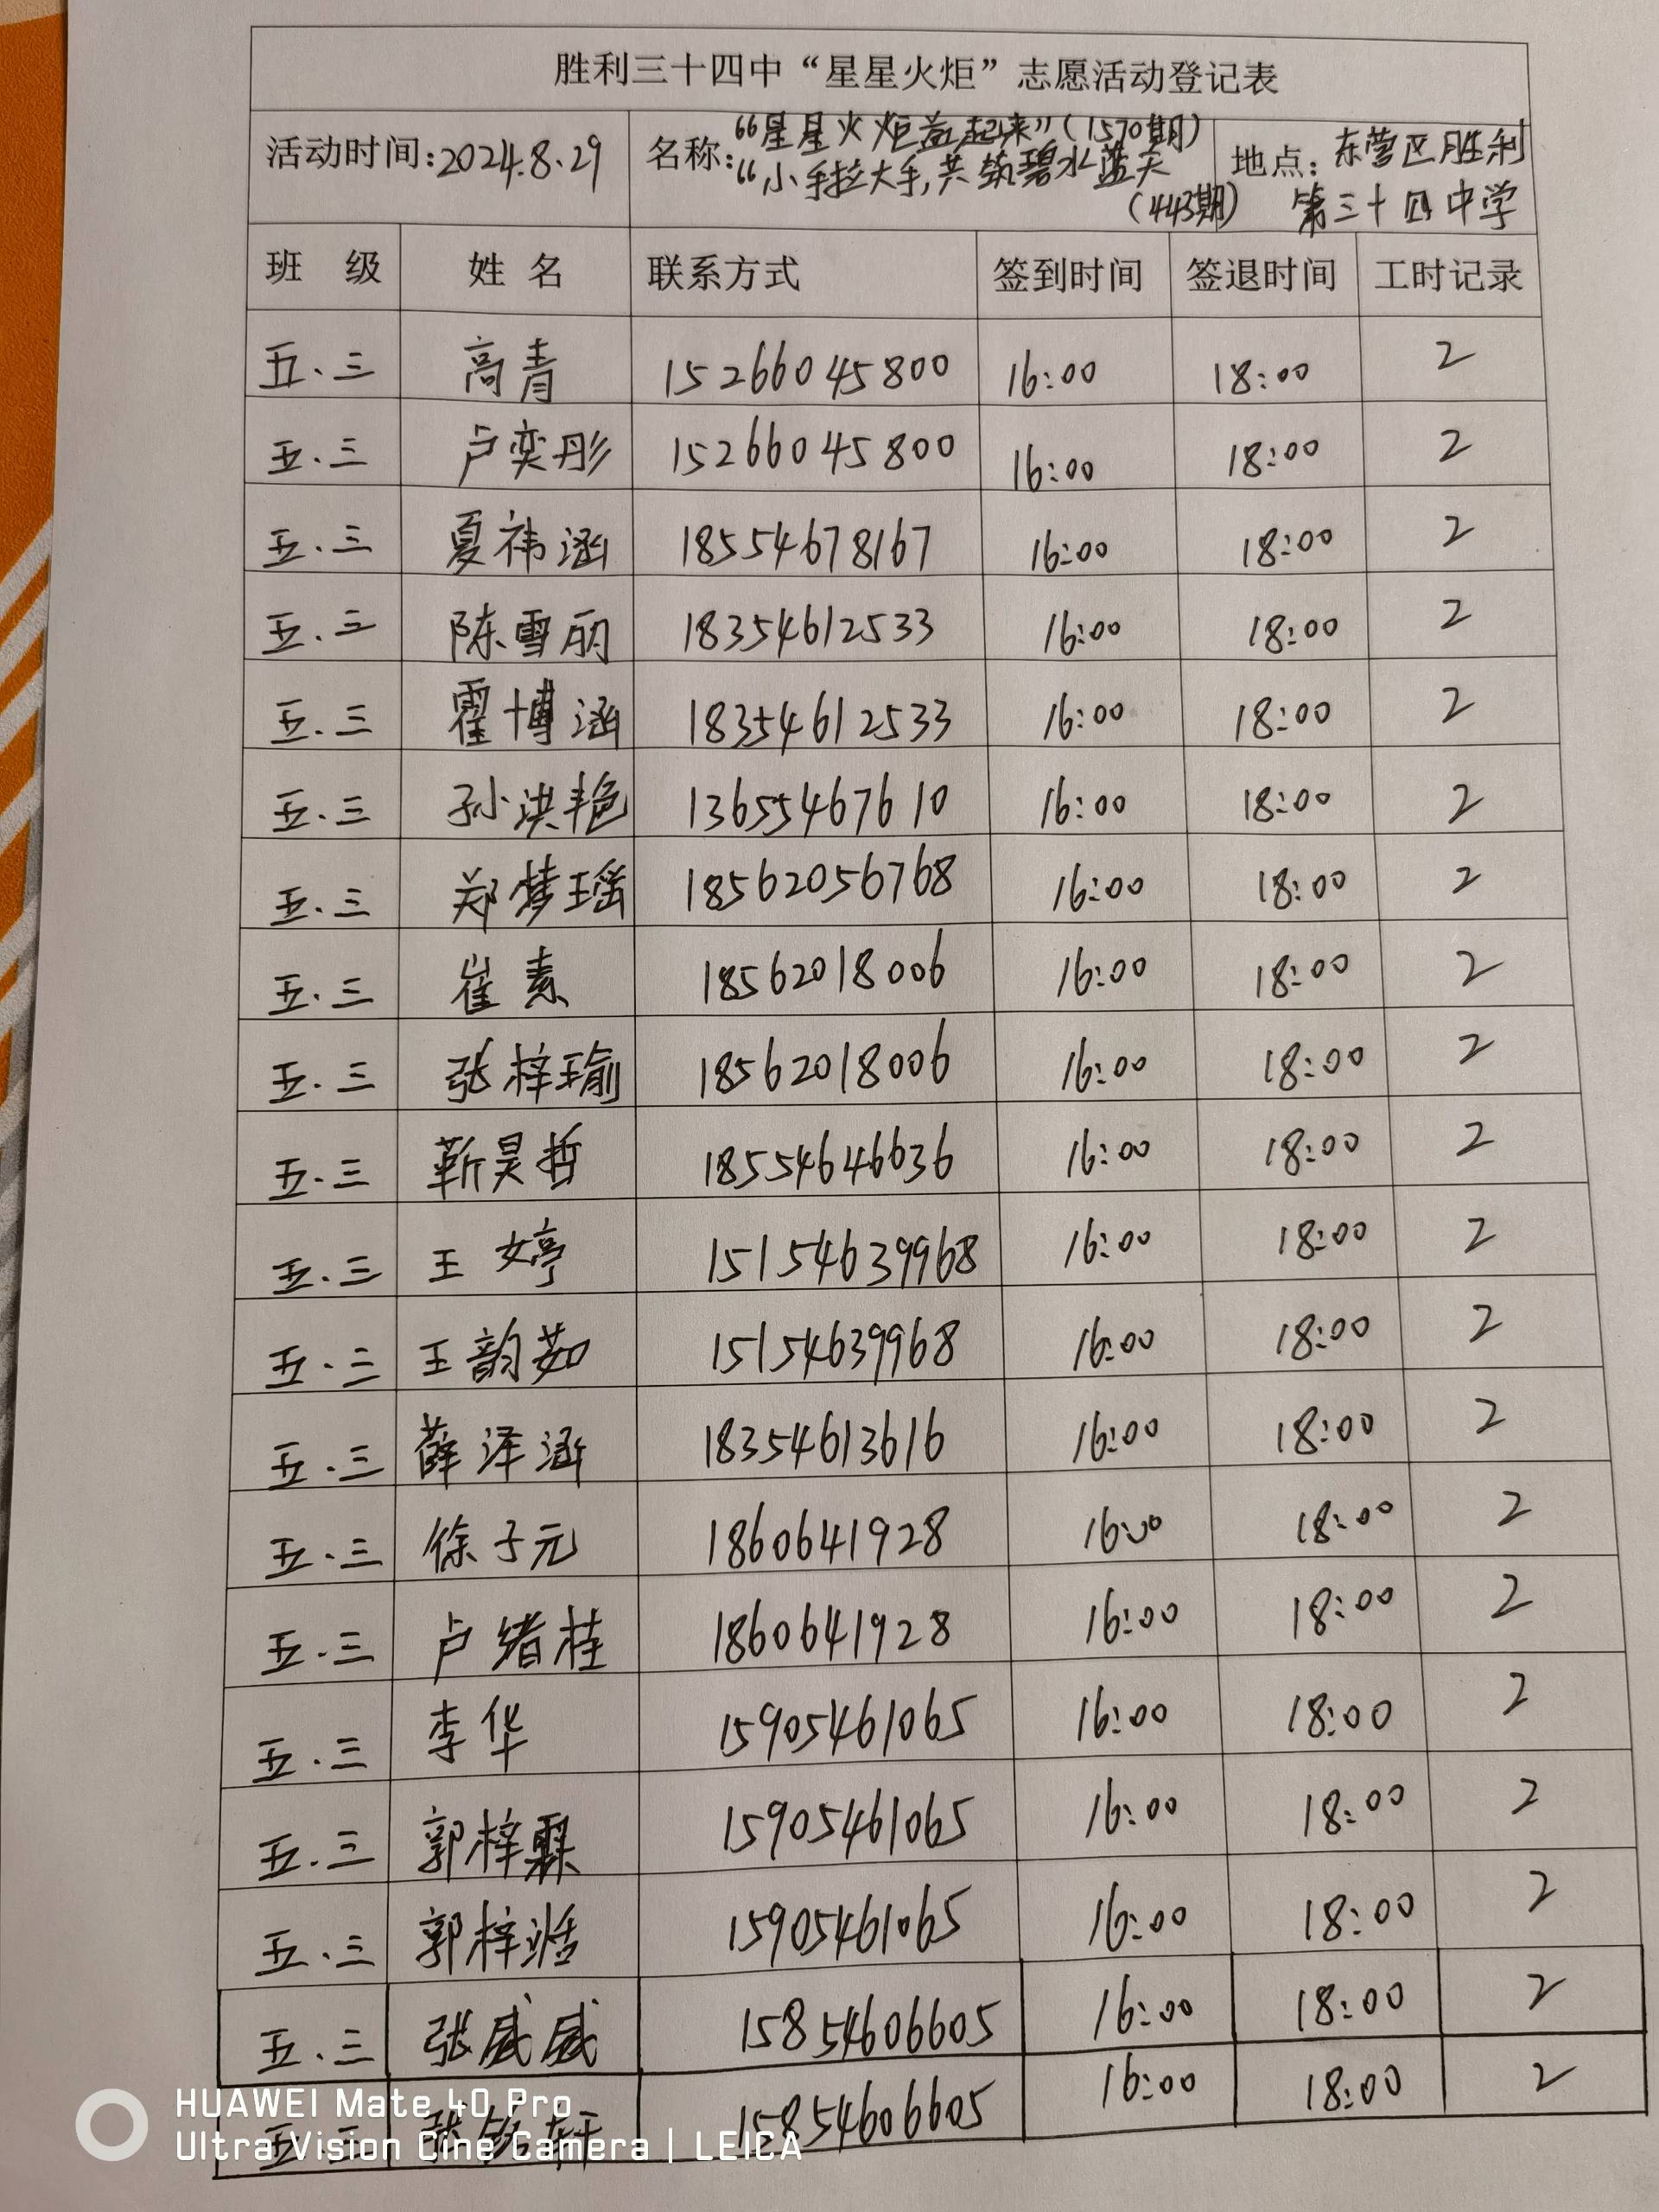 胜利三十四中“星星火炬”志愿活动登记表
活动时间:2024.8.29 名称:“星星火炬益起来”(1570期) 地点:东营区胜利
“小手拉大手,共筑碧水蓝天
(443期) 第三十四中学
班 级 姓 名 联系方式 签到时间 签退时间 工时记录
五.三 高青 15266045800 16:00 18:00 2
五.三 卢奕彤 15266045800 16:00 18:00 2
五.三 夏祎涵 18554678167 16:00 18:00 2
五.三 陈雪丽 18354612533 16:00 18:00 2
五.三 霍博涵 18354612533 16:00 18:00 2
五.三 孙洪艳 13655467610 16:00 18:00 2
五.三 郑梦瑶 18562056768 16:00 18:00 2
五.三 崔素 18562018006 16:00 18:00 2
五.三 张梓瑜 18562018006 16:00 18:00 2
五.三 靳昊哲 18554646636 16:00 18:00 2
五.三 王婷 15154639968 16:00 18:00 2
五.三 王韵茹 15154639968 16:00 18:00 2
五.三 薛泽涵 18354613616 16:00 18:00 2
五.三 徐子元 1860641928 16:00 18:00 2
五.三 卢绪桂 1860641928 16:00 18:00 2
五.三 李华 15905461065 16:00 18:00 2
五.三 郭梓霖 15905461065 16:00 18:00 2
五.三 郭梓浩 15905461065 16:00 18:00 2
五.三 张威威 15854606605 16:00 18:00 2
五.三 张 轩 15854606605 16:00 18:00 2
HUAWEI Mate 40 Pro
Ultra Vision Cine Camera | LEICA